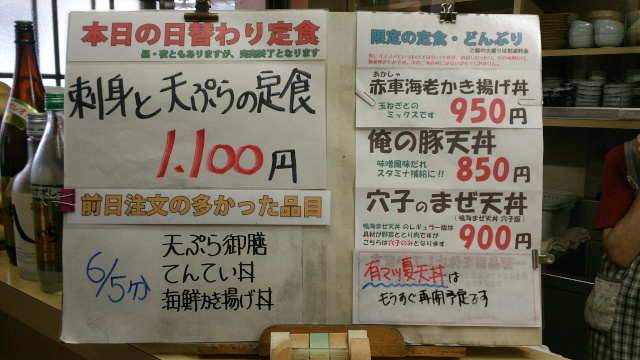 本日の日替わり定食
昼・夜ともありますが、完売終了となります
刺身と天ぷらの定食
1.100円
前日注文の多かった品目
6/5分
天ぷら御膳
てんてい丼
海鮮かき揚げ丼
限定の定食・どんぶり
ご飯の大盛りは別途料金
あかしゃ
赤車海老かき揚げ丼
玉ねぎとの
ミックスです
950円
俺の豚天丼
味噌風味だれ
スタミナ補給に!!
850円
穴子のまぜ天丼
(鳴海まぜ天丼 穴子版)
鳴海まぜ天丼 のレギュラー版は
具材が野菜ととり肉ですが
こちらは穴子のみとなります
900円
有マツ夏天丼は
もうすぐ再開予定です